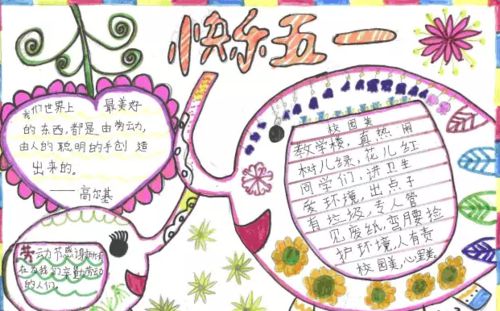 快乐五一
我们世界上 最美好
的东西，都是由劳动，
由人的聪明的手创造
出来的。
——高尔基
校园美
教学楼，真热闹
树儿绿，花儿红
同学们，讲卫生
爱环境，出点子
有垃圾，专人管
见废纸，弯腰捡
护环境，人有责
校园美，心里美
劳动节感谢所有
在为我们辛勤劳动
的人们。